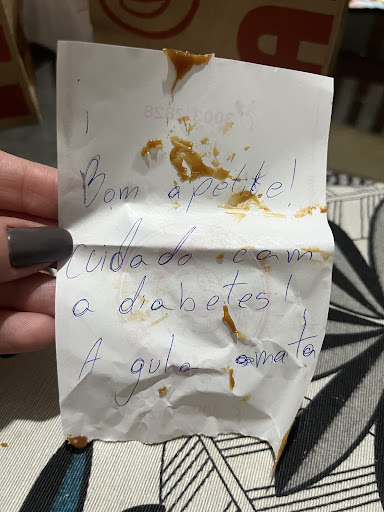 Bom apetite!
cuidado com
a diabetes!
A gula mata